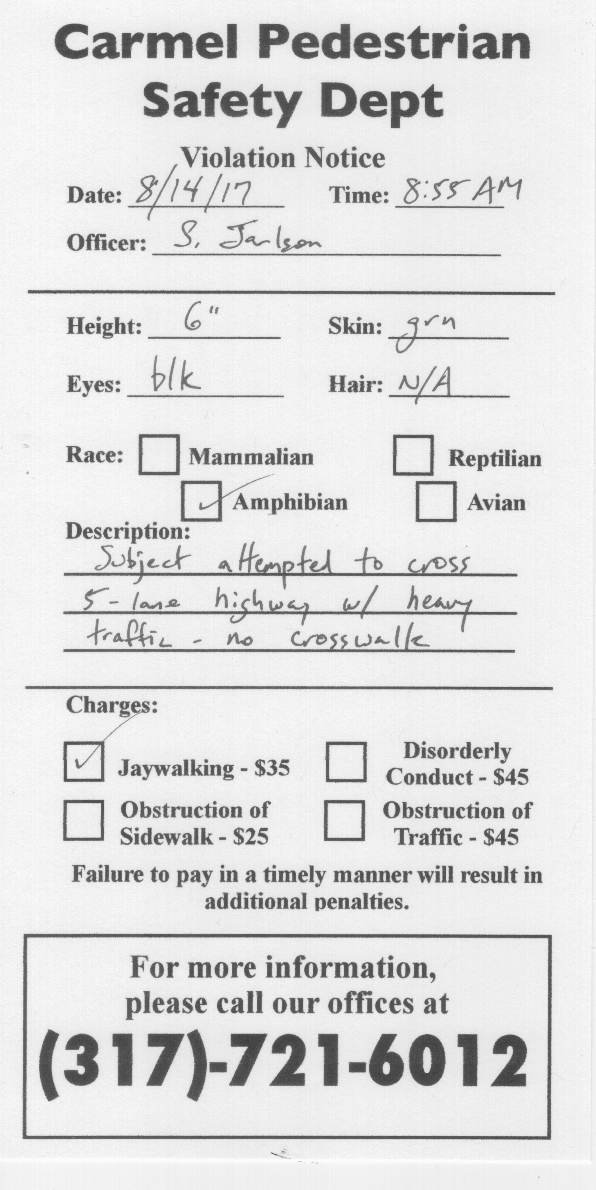 Carmel Pedestrian
Safety Dept
Violation Notice
Date: 8/14/17 Time: 8:55 AM
Officer: S. Jarlson
Height: 6" Skin: grn
Eyes: blk Hair: N/A
Race: Mammalian Reptilian
Amphibian Avian
Description:
Subject attempted to cross
5-lane highway w/ heavy
traffic - no crosswalk
Charges:
Jaywalking - $35 Disorderly
Conduct - $45
Obstruction of Obstruction of
Sidewalk - $25 Traffic - $45
Failure to pay in a timely manner will result in
additional penalties.
For more information,
please call our offices at
(317)-721-6012